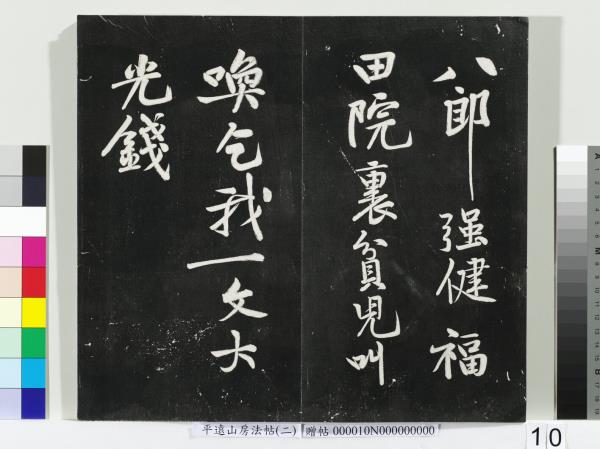 八郎強健福
田院裏貧児叫
喚乞我一文大
光錢
平遠山房法帖(二)
贈帖 000010N000000000
10